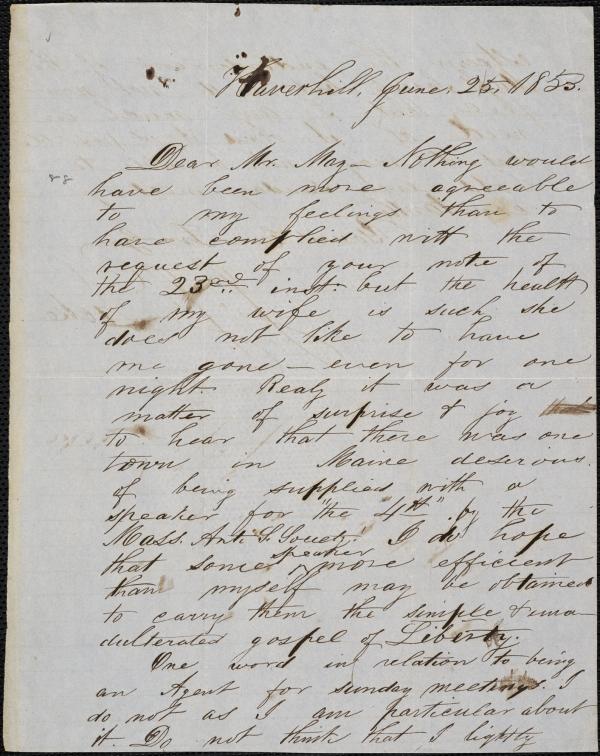 Haverhill, June, 25, 1853.
Dear Mr. May – Nothing would
have been more agreeable
to my feelings than to
have complied with the
request of your note of
the 23rd. inst. but the health
of my wife is such she
does not like to have
me gone – even for one
night. Realy it was a
matter of surprise & joy
to hear that there was one
town in Maine deserious
of being supplied with a
speaker for "the 4th" by the
Mass. Anti S. Society. I do hope
that some speaker more efficient
than myself may be obtained
to carry them the simple & una-
dulterated gospel of Liberty.
One word in relation to being
an Agent for sunday meetings. I
do not as I am particular about
it. Do not think that I lightly